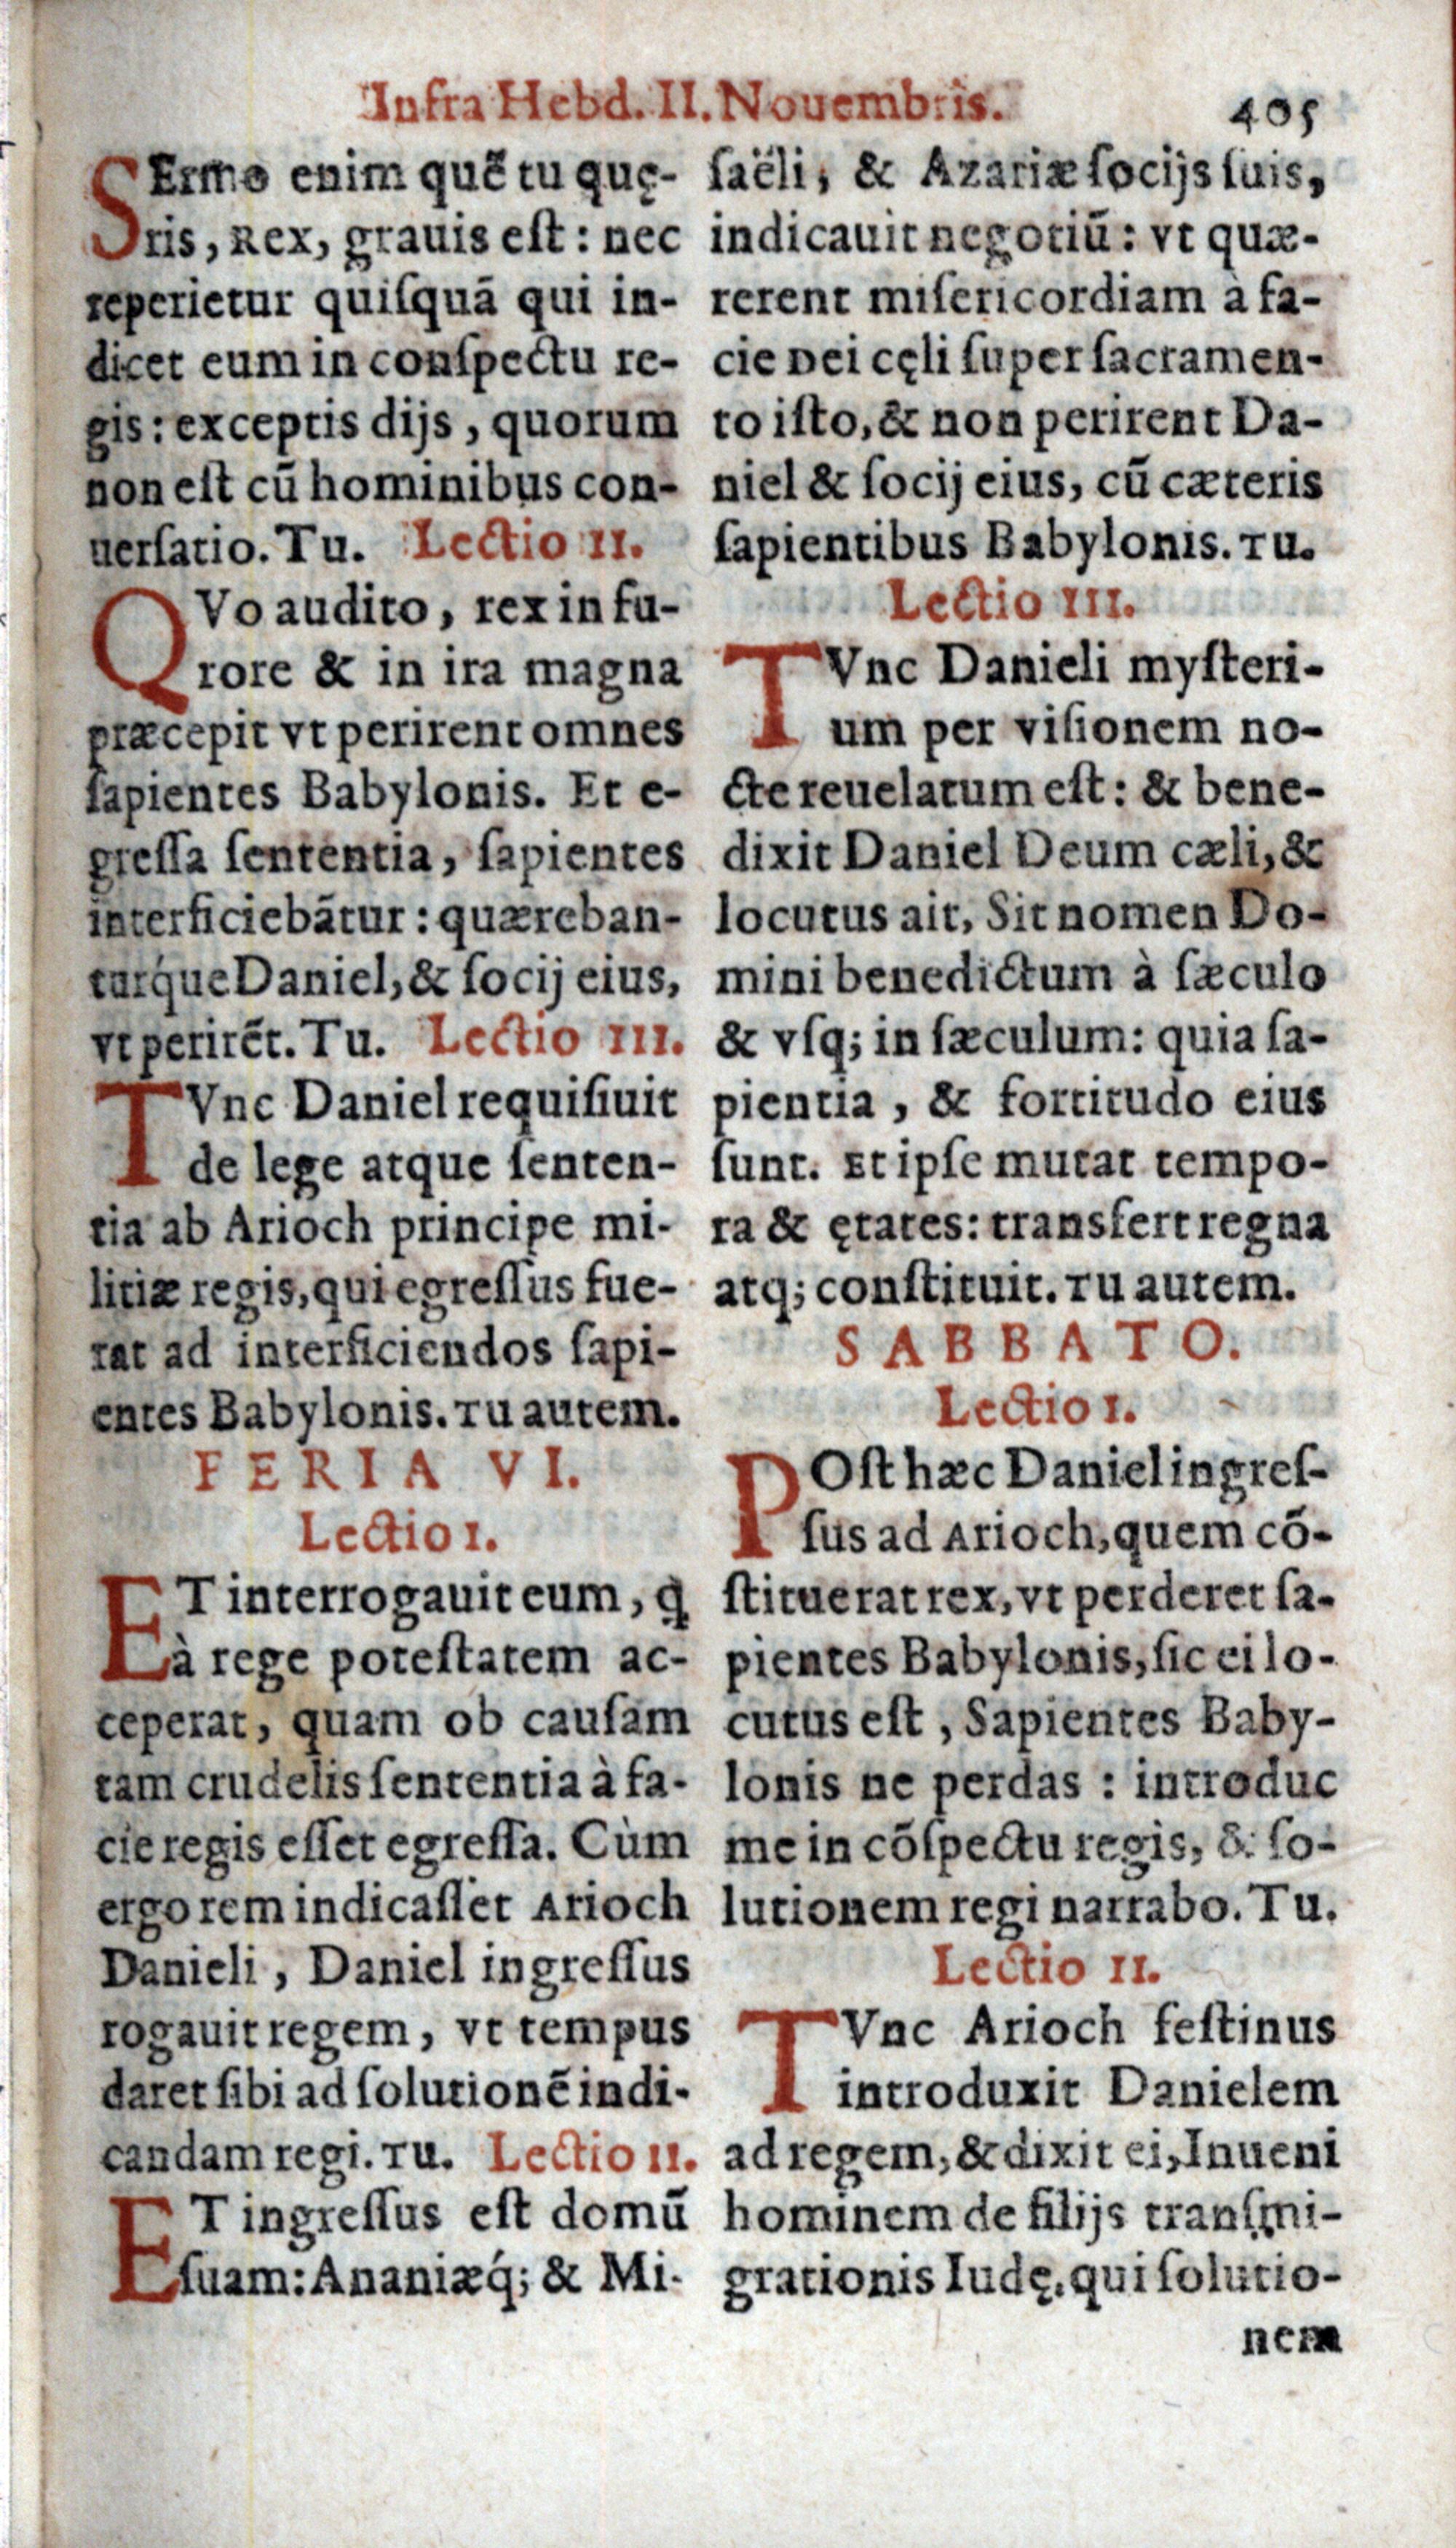 Infra Hebd. II. Nouembris. 405
SErmo enim quē tu quę-
ris, Rex, grauis eſt: nec
reperietur quiſquā qui in-
dicet eum in conſpectu re-
gis: exceptis dijs, quorum
non eſt cū hominibus con-
uerſatio. Tu. Lectio II.
QVo audito, rex in fu-
rore & in ira magna
præcepit vt perirent omnes
ſapientes Babylonis. Et e-
greſſa ſententia, ſapientes
interficiebātur: quæreban-
turq́ue Daniel, & ſocij eius,
vt perirēt. Tu. Lectio III.
TVnc Daniel requiſiuit
de lege atque ſenten-
tia ab Arioch principe mi-
litiæ regis, qui egreſſus fue-
rat ad interficiendos ſapi-
entes Babylonis. Tu autem.
FERIA VI.
Lectio I.
ET interrogauit eum, ꝗ
à rege poteſtatem ac-
ceperat, quam ob cauſam
tam crudelis ſententia à fa-
cie regis eſſet egreſſa. Cùm
ergo rem indicaſſet Arioch
Danieli, Daniel ingreſſus
rogauit regem, vt tempus
daret ſibi ad ſolutionē indi-
candam regi. Tu. Lectio II.
ET ingreſſus eſt domū
ſuam: Ananiæq́; & Mi-
ſaëli, & Azariæ ſocijs ſuis,
indicauit negotiū: vt quæ-
rerent miſericordiam à fa-
cie Dei cęli ſuper ſacramen-
to iſto, & non perirent Da-
niel & ſocij eius, cū cæteris
ſapientibus Babylonis. Tu.
Lectio III.
TVnc Danieli myſteri-
um per viſionem no-
cte reuelatum eſt: & bene-
dixit Daniel Deum cæli, &
locutus ait, Sit nomen Do-
mini benedictum à ſæculo
& vſq; in ſæculum: quia ſa-
pientia, & fortitudo eius
ſunt. Et ipſe mutat tempo-
ra & ętates: transfert regna
atq; conſtituit. Tu autem.
SABBATO.
Lectio I.
POſt hæc Daniel ingreſ-
ſus ad Arioch, quem cō-
ſtituerat rex, vt perderet ſa-
pientes Babylonis, ſic ei lo-
cutus eſt, Sapientes Baby-
lonis ne perdas: introduc
me in cōſpectu regis, & ſo-
lutionem regi narrabo. Tu.
Lectio II.
TVnc Arioch feſtinus
introduxit Danielem
ad regem, & dixit ei, Inueni
hominem de filijs tranſmi-
grationis Iudę, qui ſolutio-
nem